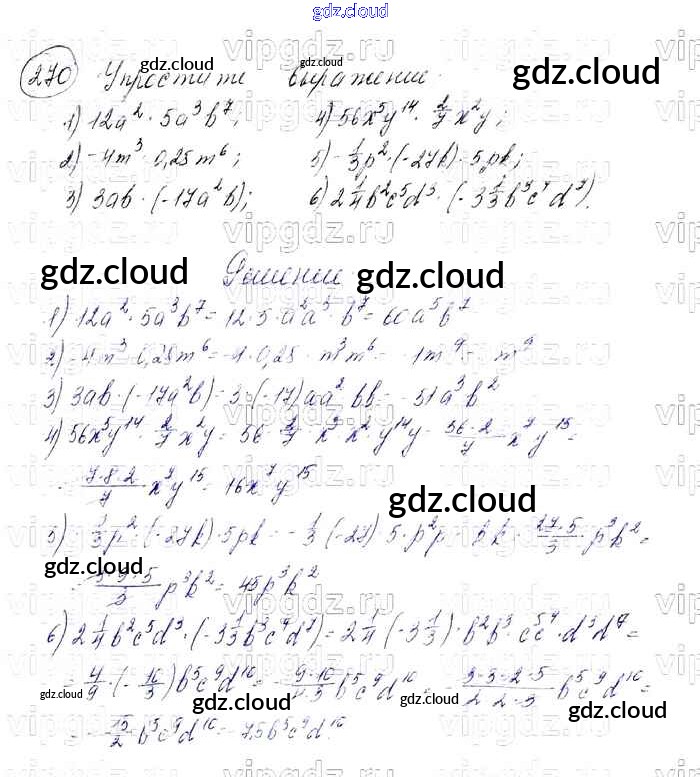 gdz.cloud
270 Упростите выражение.
1) 12a² · 5a³b⁷; 4) 56x⁵y¹⁴ · 2/7 x²y;
2) -4m³ · 0,25m⁶; 5) -1/3 p² · (-27k) · 5pk;
3) 3ab · (-17a²b); 6) 2 1/4 b²c⁵d³ · (-3 1/3 b³c⁴d⁷).
Решение
1) 12a² · 5a³b⁷ = 12 · 5 · a²a³ · b⁷ = 60a⁵b⁷
2) -4m³ · 0,25m⁶ = -4 · 0,25 · m³m⁶ = -1m⁹ = -m⁹
3) 3ab · (-17a²b) = 3 · (-17) aa² bb = -51a³b²
4) 56x⁵y¹⁴ · 2/7 x²y = 56 · 2/7 · x⁵x² · y¹⁴y = 56·2/7 x⁷y¹⁵ =
= 7·8·2/7 x⁷y¹⁵ = 16x⁷y¹⁵
5) -1/3 p² · (-27k) · 5pk = -1/3 · (-27) · 5 · p²p · k k = 27·5/3 · p³k² =
= 3·9·5/3 p³k² = 45p³k²
6) 2 1/4 b²c⁵d³ · (-3 1/3 b³c⁴d⁷) = 2 1/4 · (-3 1/3) · b²b³ · c⁵c⁴ · d³d⁷ =
= 4/9 · (-10/3) b⁵c⁹d¹⁰ = -9·10/4·3 b⁵c⁹d¹⁰ = -3·3·2·5/2·2·3 b⁵c⁹d¹⁰ =
= -15/2 b⁵c⁹d¹⁰ = -7,5b⁵c⁹d¹⁰.